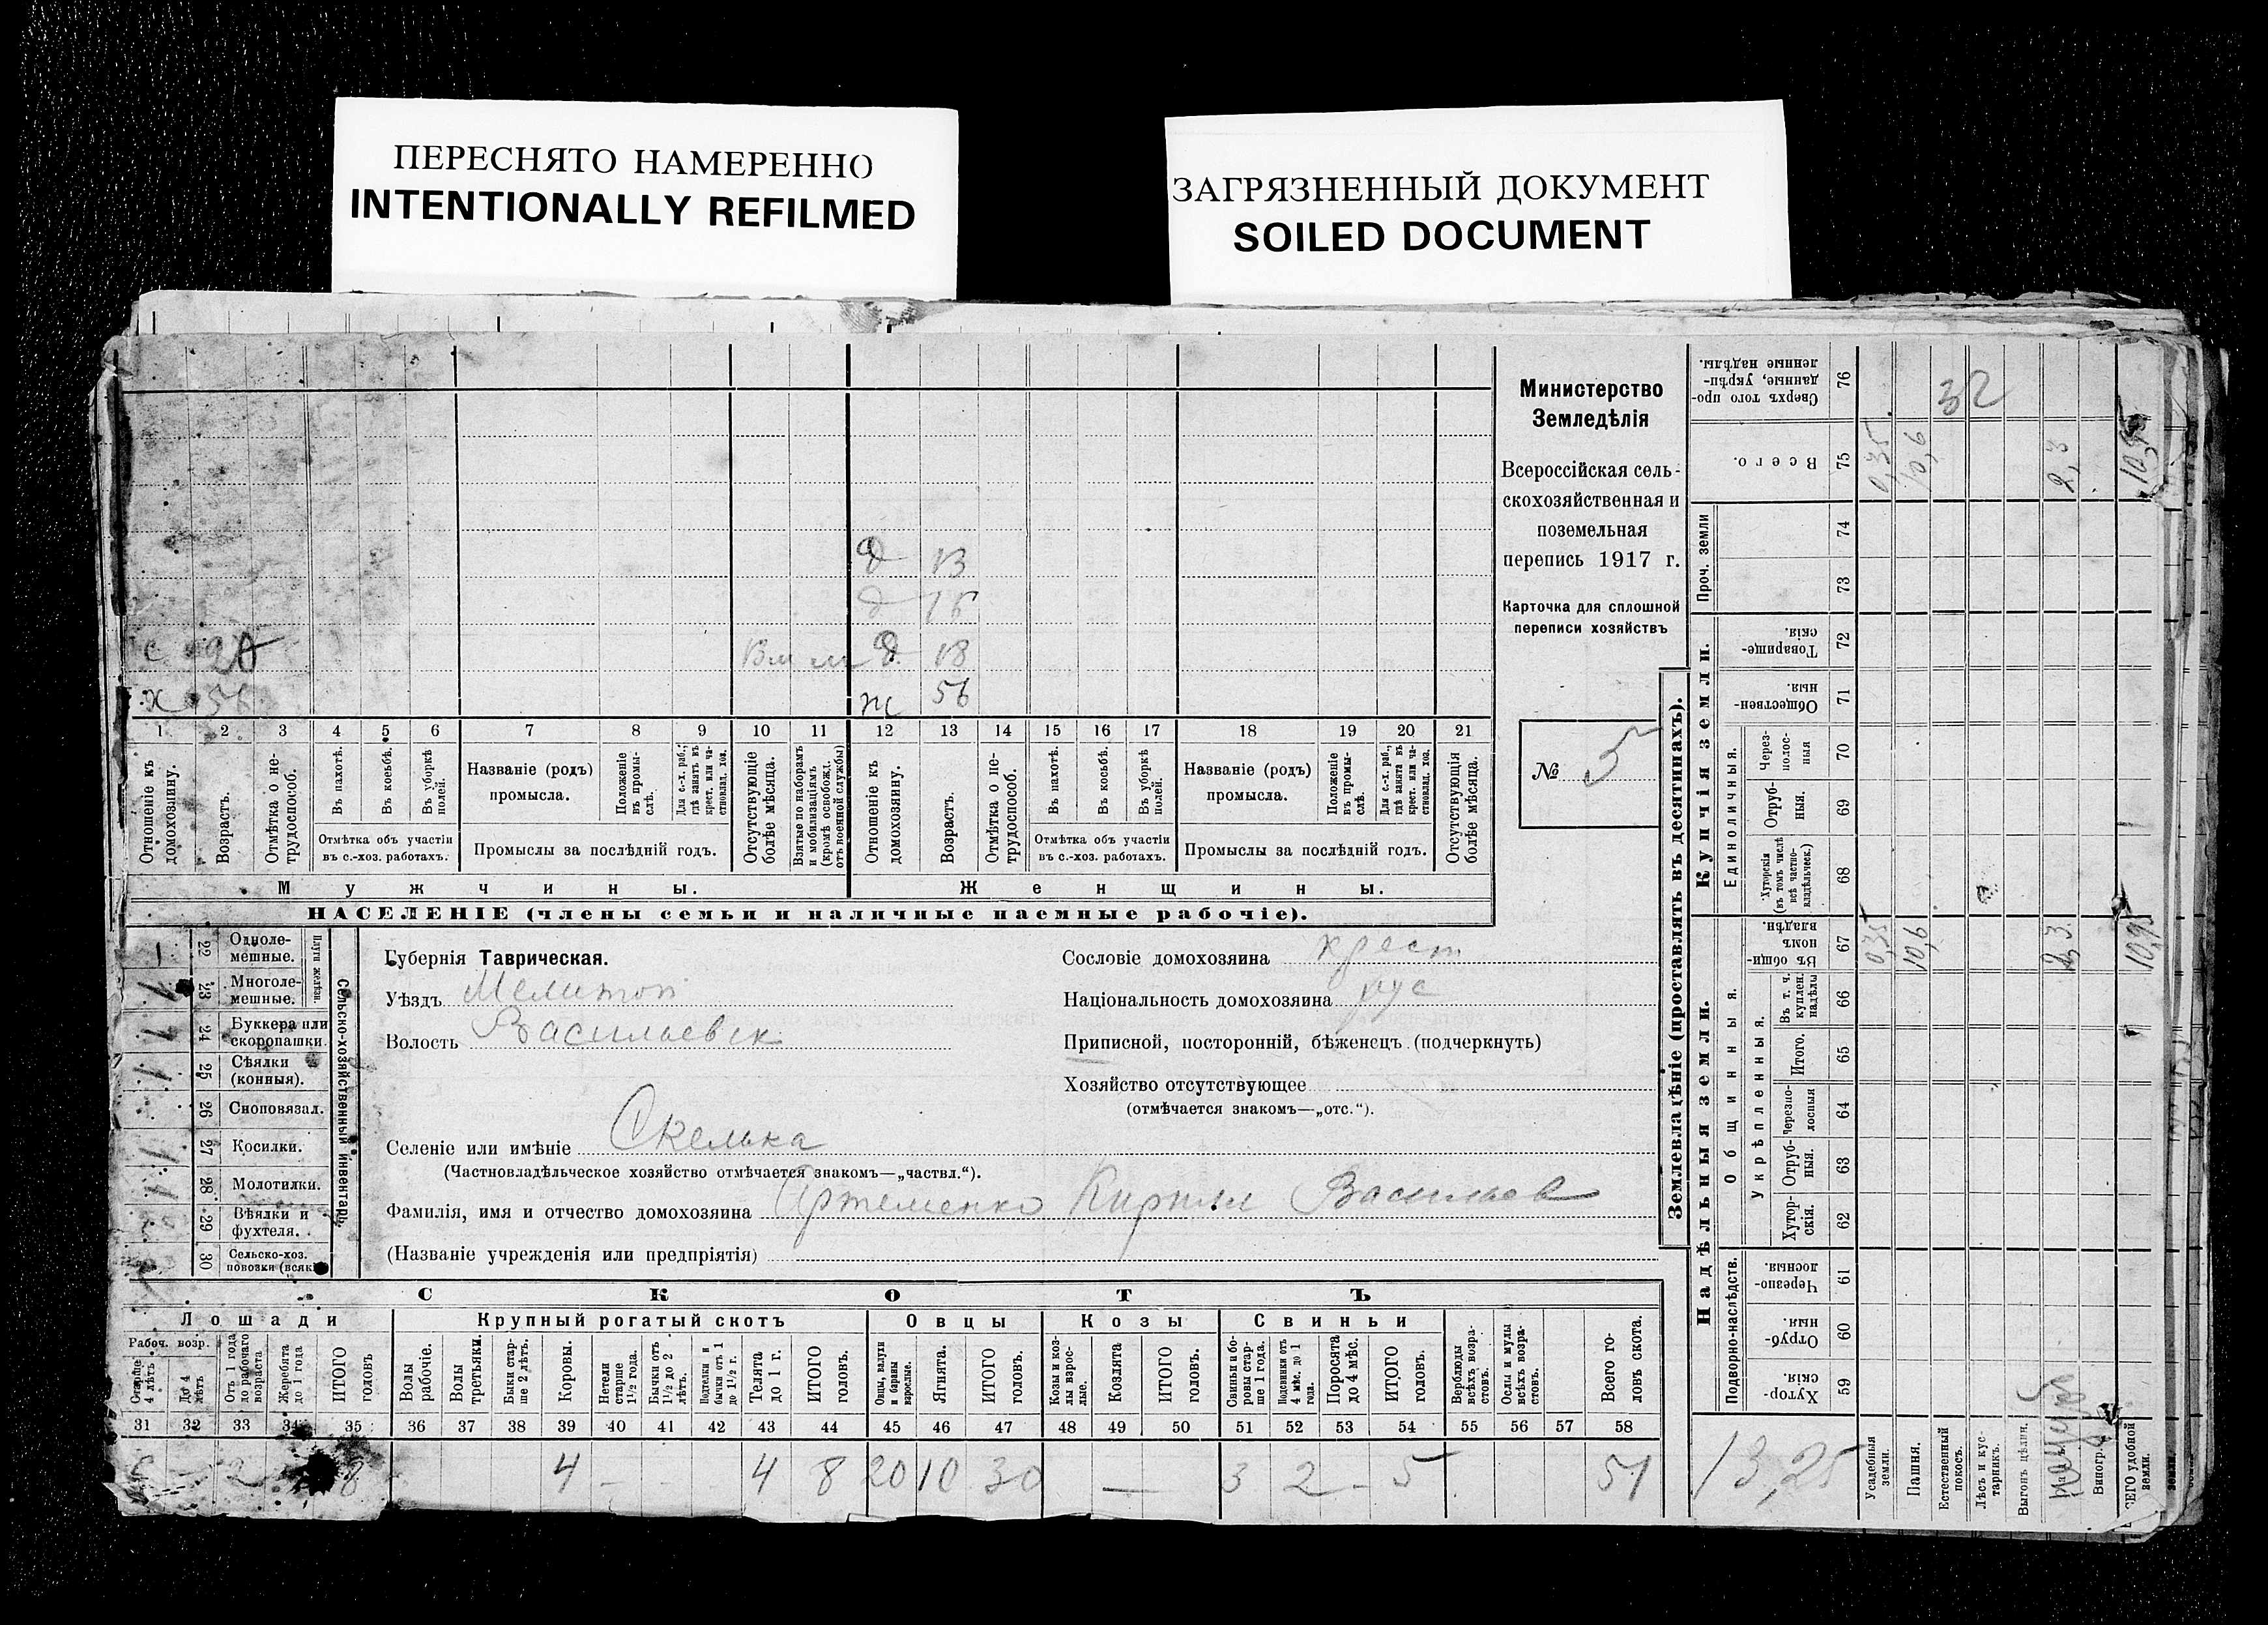 ПЕРЕСНЯТО НАМЕРЕННО
INTENTIONALLY REFILMED
ЗАГРЯЗНЕННЫЙ ДОКУМЕНТ
SOILED DOCUMENT
д 13
д 16
с 20
д 18
ж 56
1 2 3 4 5 6 7 8 9 10 11 12 13 14 15 16 17 18 19 20 21
Отношеніе къ домохозяину.
Возрастъ.
Отмѣтка о нетрудоспособ.
Въ пахотѣ.
Въ косьбѣ.
Въ уборкѣ полей.
Отмѣтка объ участіи
въ с.-хоз. работахъ.
Названіе (родъ)
промысла.
Положеніе въ промыслѣ.
Для с.-х. раб., гдѣ занятъ въ крест. или частновлад. хоз.
Промыслы за послѣдній годъ.
Отсутствующіе болѣе мѣсяца.
Взятые по наборамъ и мобилизаціямъ (кромѣ освобожд. отъ военной службы)
Отношеніе къ домохозяину.
Возрастъ.
Отмѣтка о нетрудоспособ.
Въ пахотѣ.
Въ косьбѣ.
Въ уборкѣ полей.
Отмѣтка объ участіи
въ с.-хоз. работахъ.
Названіе (родъ)
промысла.
Положеніе въ промыслѣ.
Для с.-х. раб., гдѣ занята въ крест. или частновлад. хоз.
Промыслы за послѣдній годъ.
Отсутствующія болѣе мѣсяца.
Мужчины.
Женщины.
НАСЕЛЕНІЕ (члены семьи и наличные наемные рабочіе).
Министерство
Земледѣлія
Всероссійская сель-
скохозяйственная и
поземельная
перепись 1917 г.
Карточка для сплошной
переписи хозяйствъ
№ 5
Плуги желѣзн.
22 Одноле-
мешные.
23 Многоле-
мешные.
24 Буккера или
скоропашки.
25 Сѣялки
(конныя).
26 Сноповязал.
27 Косилки.
28 Молотилки.
29 Вѣялки и
фухтеля.
30 Сельско-хоз.
повозки (всякія)
Сельско-хозяйственный инвентарь
Губернія Таврическая.
Уѣздъ Мелитоп
Волость Васильевск
Сословіе домохозяина крест
Національность домохозяина рус
Приписной, посторонній, бѣженецъ (подчеркнуть)
Хозяйство отсутствующее
(отмѣчается знакомъ—„отс.“).
Селеніе или имѣніе Скелька
(Частновладѣльческое хозяйство отмѣчается знакомъ—„частвл.“).
Фамилія, имя и отчество домохозяина Артеменко Кирилл Васильев
(Названіе учрежденія или предпріятія)
СКОТЪ
Лошади
Крупный рогатый скотъ
Овцы
Козы
Свиньи
Рабоч. возр.
Старше 4 лѣтъ
До 4 лѣтъ
Отъ 1 года до рабочаго возраста
Жеребята до 1 года
ИТОГО головъ
Волы рабочіе.
Волы третьяки.
Быки старше 2 лѣтъ.
Коровы.
Нетели старше 1½ года.
Бычки отъ 1½ до 2 лѣтъ.
Подтелки и бычки отъ 1 до 1½ г.
Телята до 1 г.
ИТОГО головъ.
Овцы, валухи и бараны взрослые.
Ягнята.
ИТОГО головъ.
Козы и козлы взрослые.
Козлята
ИТОГО головъ.
Свиньи и боровы старше 1 года.
Подсвинки отъ 4 мѣс. до 1 года.
Поросята до 4 мѣс.
ИТОГО головъ.
Верблюды всѣхъ возрастовъ.
Ослы и мулы всѣхъ возрастовъ.
Всего головъ скота.
31 32 33 34 35 36 37 38 39 40 41 42 43 44 45 46 47 48 49 50 51 52 53 54 55 56 57 58
2 8 4 – 4 8 20 10 30 — 3 2 – 5 51
Землевладѣніе (проставлять въ десятинахъ).
Купчія земли.
Надѣльныя земли.
Сверхъ того проданные, укрѣпленные надѣлы. 76
32
Всего. 75
0,35 10,6 2,3 10,95
Проч. земли
74
73
Товарищескія. 72
Общественныя. 71
Единоличныя.
Черезполосныя 70
Отрубныя. 69
Хуторскія (въ томъ числѣ всѣ частновладѣльческ.) 68
Общинныя.
Въ общиномъ владѣн. 67
0,35 10,6 2,3 10,95
Укрѣпленныя.
Въ т. ч. куплен. надѣлы 66
Итого. 65
Черезполосныя 64
Отрубныя. 63
Хуторскія. 62
Подворно-наслѣдств.
Черезполосныя 61
Отрубныя. 60
Хуторскія. 59
13,25
Усадебныя земли.
Пашня.
Естественный покосъ.
Лѣсъ и кустарникъ.
Выгонъ цѣлин.
Виногр.
ВСЕГО удобной земли.